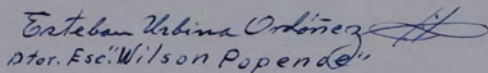 Esteban Urbina Ordóñez
Dtor. Esc. "Wilson Popenoe"